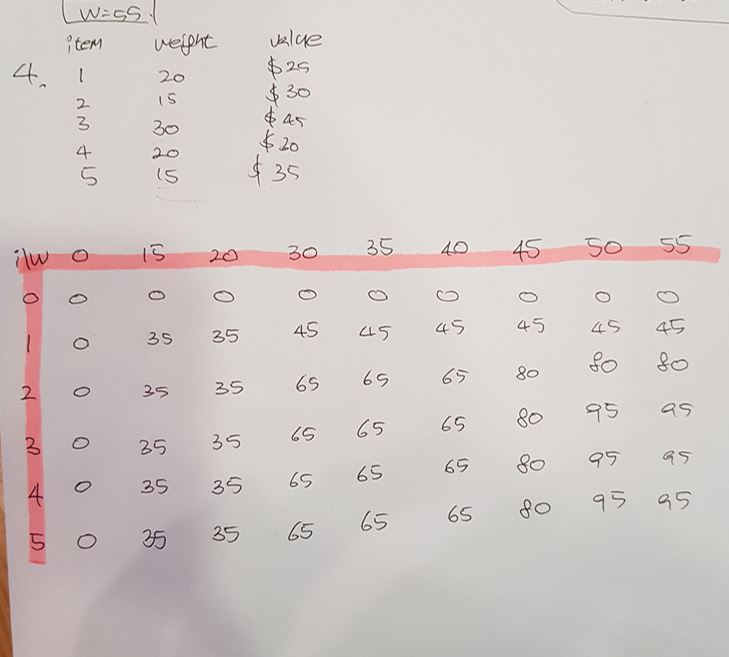 W=55
item weight value
4. 1 20 $25
2 15 $30
3 30 $45
4 20 $20
5 15 $35
i\W 0 15 20 30 35 40 45 50 55
0 0 0 0 0 0 0 0 0 0
1 0 35 35 45 45 45 45 45 45
2 0 35 35 65 65 65 80 80 80
3 0 35 35 65 65 65 80 95 95
4 0 35 35 65 65 65 80 95 95
5 0 35 35 65 65 65 80 95 95